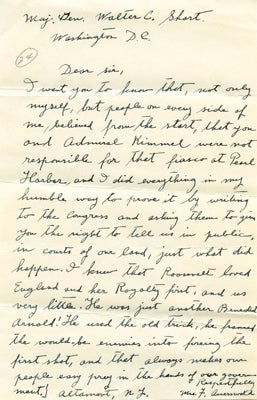 Maj. Gen. Walter C. Short.
Washington D.C.
24
Dear sir,
I want you to know that, not only
myself, but people on every side of
me, believed from the start, that you
and Admiral Kimmel were not
responsible for that fiasco at Pearl
Harbor, and I did everything in my
humble way to prove it by writing
to the Congress and asking them to give
you the right to tell us in public,
in courts of our land, just what did
happen. I knew that Roosevelt loved
England and her Royalty first, and us
very little. He was just another Benedict
Arnold! He used the old trick, he forced
the would-be enemies into firing the
first shot, and that always makes our
people easy prey in the hands of our govern-
ment,] Altamont, N.Y.
Respectfully
Mrs F.